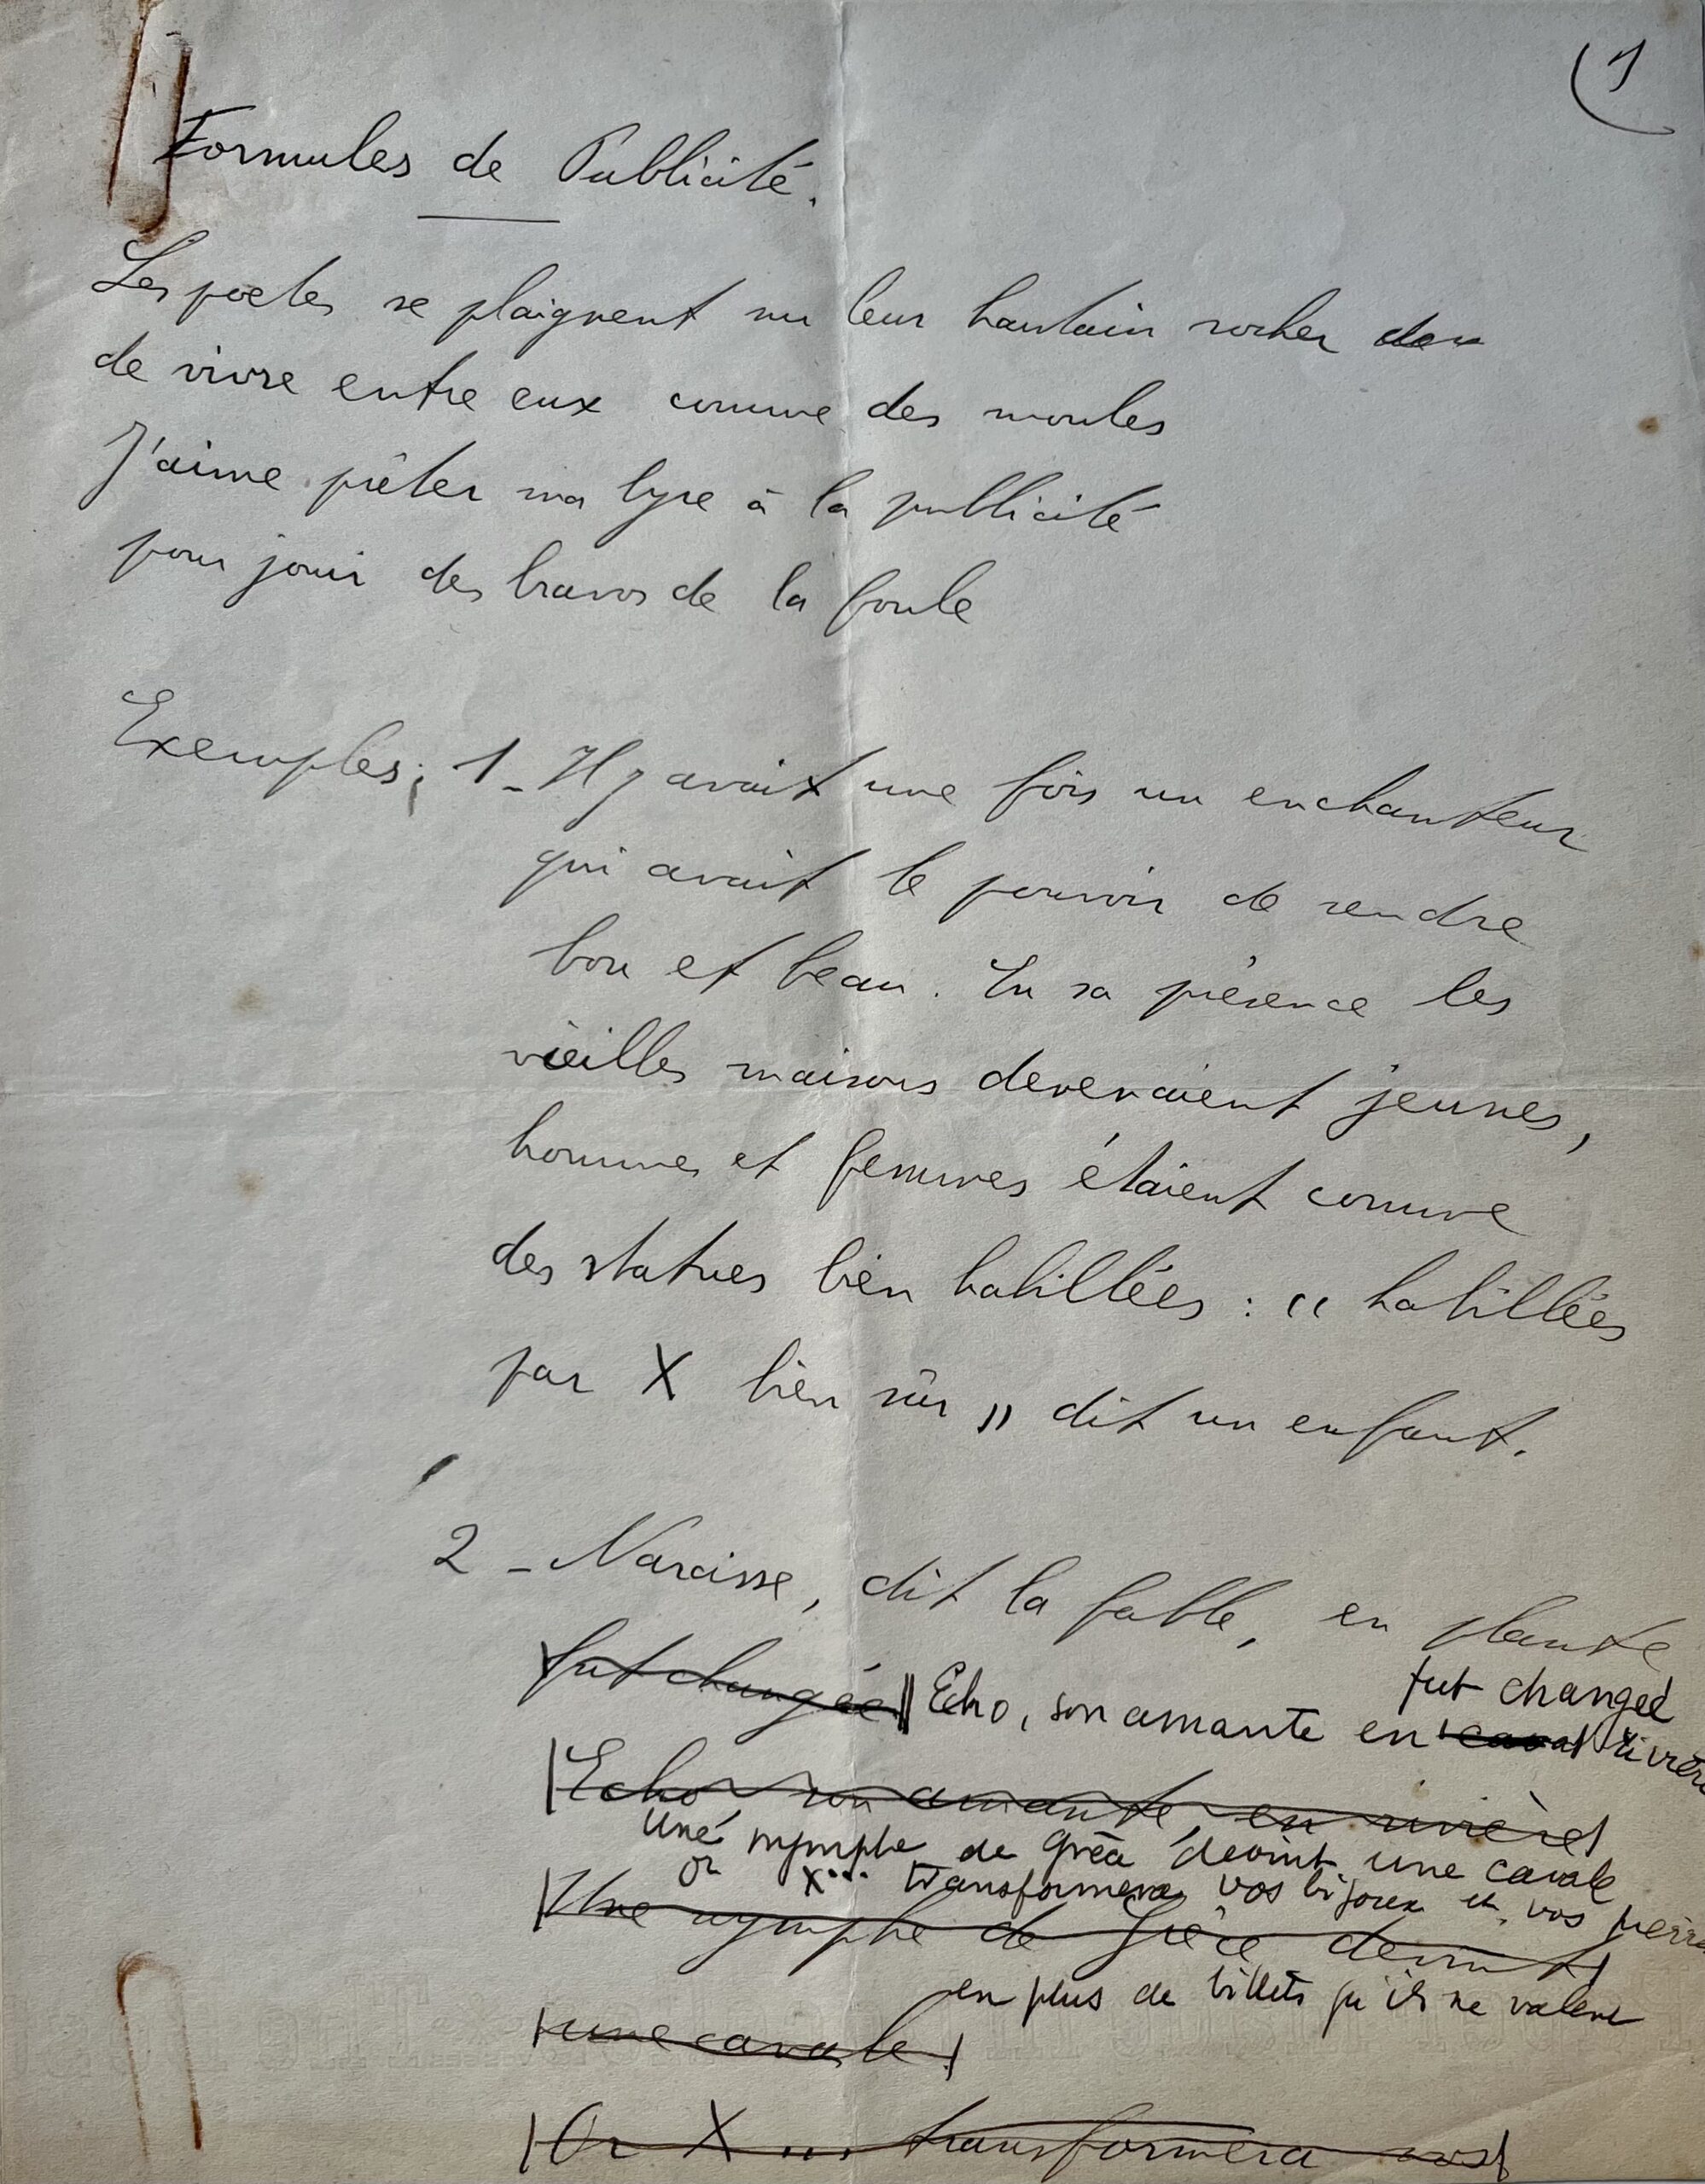 1
Formules de Publicité.
Les poetes se plaignent sur leur hautain rocher
de vivre entre eux comme des moules
J'aime prêter ma lyre à la publicité
pour jouir des bravos de la foule
Exemples; 1 - Il y avait une fois un enchanteur
qui avait le pouvoir de rendre
bon et beau. En sa présence les
vieilles maisons devenaient jeunes,
hommes et femmes étaient comme
des statues bien habillées : "habillées
par X bien sûr" dit un enfant.
2 - Narcisse, dit la fable, en plante
fut changé
fut changée Echo, son amante en rivière
Echo son amante, en rivière
Une nymphe de Grèce devint une cavale
Or X... transformera vos bijoux et vos pierres
Une nymphe de Grèce devint
en plus de billets qu'ils ne valent
une cavale.
Or X ... transformera vos